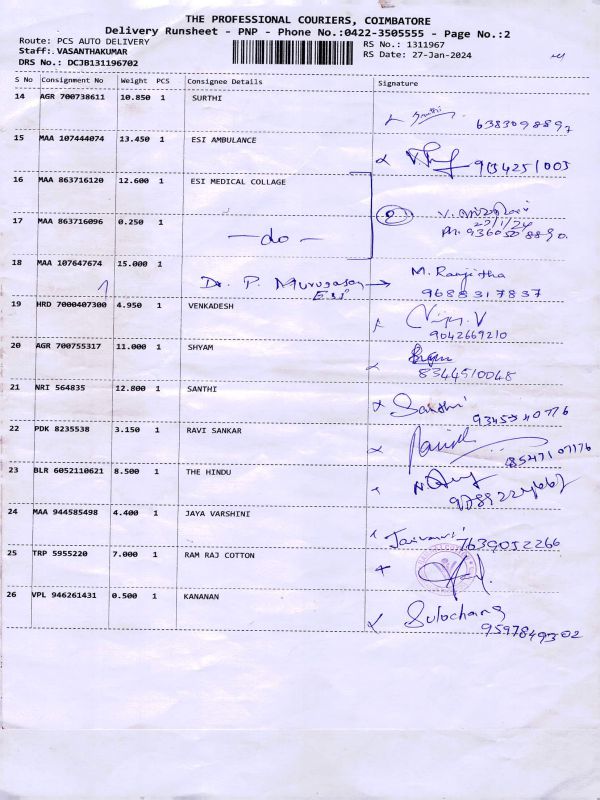 THE PROFESSIONAL COURIERS, COIMBATORE
Delivery Runsheet - PNP - Phone No.:0422-3505555 - Page No.:2
Route: PCS AUTO DELIVERY
RS No.: 1311967
Staff:.VASANTHAKUMAR
RS Date: 27-Jan-2024
DRS No.: DCJB131196702
S No Consignment No Weight PCS Consignee Details Signature
14 AGR 700738611 10.850 1 SURTHI
6383098897
15 MAA 107444074 13.450 1 ESI AMBULANCE
16 MAA 863716120 12.600 1 ESI MEDICAL COLLAGE
17 MAA 863716096 0.250 1 — do —
18 MAA 107647674 15.000 1 Dr. P. Murugasan → M. Ranjitha
ESI 9688317837
19 HRD 7000407300 4.950 1 VENKADESH Vijay.V
9042669210
20 AGR 700755317 11.000 1 SHYAM
8344510048
21 NRI 564835 12.800 1 SANTHI Santhi
9345540776
22 PDK 8235538 3.150 1 RAVI SANKAR
8547107176
23 BLR 6052110621 8.500 1 THE HINDU
24 MAA 944585498 4.400 1 JAYA VARSHINI
7639052266
25 TRP 5955220 7.000 1 RAM RAJ COTTON
26 VPL 946261431 0.500 1 KANANAN Sulochana
9597849302